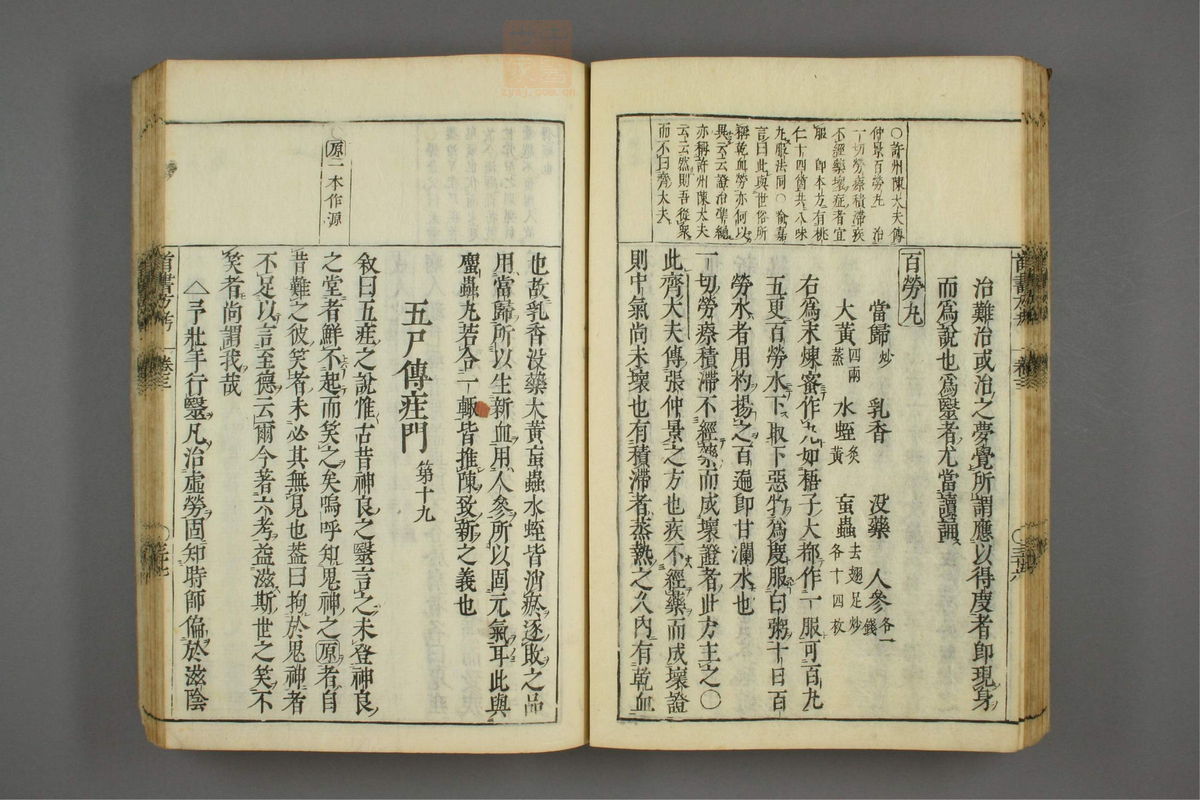 治難治或治之夢覺所謂應以得度者即現身
而爲說也爲毉者尤當讀誦
百勞丸
當歸炒 乳香 没藥 人參各一錢
大黃四兩蒸 水蛭炙黃 䖟蟲去翅足炒各十四枚
右爲末煉蜜作丸如梧子大都作一服可百丸
五更百勞水下取下惡物爲度服白粥十日百
勞水者用杓揚之百遍即甘瀾水也
一切勞瘵積滯不經藥而成壞證者此方主之〇
此齊大夫傳張仲景之方也疾不經藥而成壞證
則中氣尚未壞也有積滯者蒸熱之久內有乾血
〇許州陳大夫傳
仲景百勞丸 治
一切勞瘵積滯疾
不經藥壞症者宜
服 即本方有桃
仁十四箇共八味
丸服法同〇喻嘉
言曰此與世俗所
稱乾血勞亦何以
異云云證治準繩
亦稱許州陳大夫
云云然則吾從衆
而不曰齊大夫
首書方考 卷三 〇三十六
也故乳香没藥大黃䖟蟲水蛭皆消瘀逐敗之品
用當歸所以生新血用人參所以固元氣耳此與
䗪蟲丸若合一轍皆推陳致新之義也
五尸傳疰門 第十九
敘曰五疰之說惟古昔神良之毉言之未登神良
之堂者鮮不起而笑之矣嗚呼知鬼神之原者自
昔難之彼笑者未必其無見也蓋曰拘於鬼神者
不足以言至德云爾今著六考益滋斯世之笑不
笑者尚謂我哉
予壯手行毉凡治虛勞固知時師偏於滋陰
〇原一本作源
首書方考 卷三 〇三十七